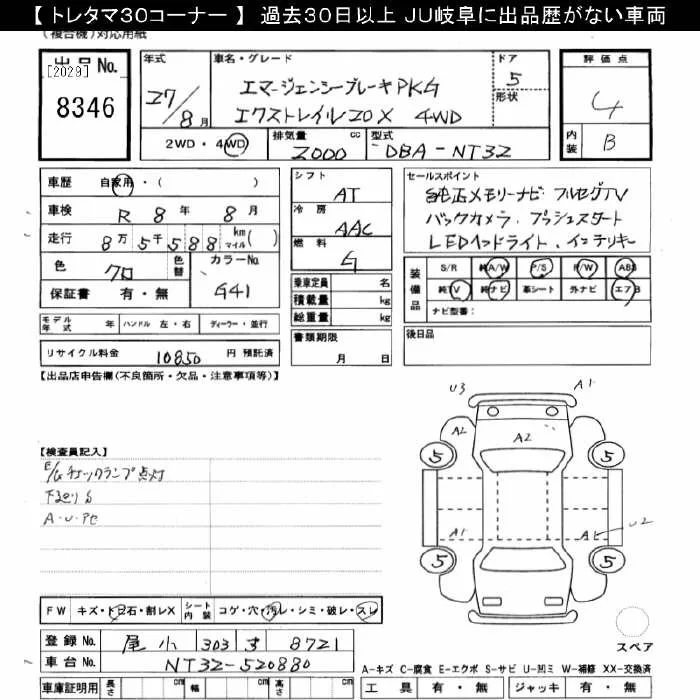 【 トレタマ30コーナー 】 過去30日以上 JU岐阜に出品歴がない車両
(複合機)対応用紙
出品No.
[2029]
8346
年式
27/8月
車名・グレード
エマージェンシーブレーキPKG
エクストレイル20X 4WD
ドア
5
形状
評価点
4
内装
B
2WD・4WD
排気量
2000
cc
型式
DBA-NT32
車歴 自家用・( )
車検 R 8年 8月
走行 8万5千588 km マイル( )
色 クロ 色替
カラーNo.
G41
保証書 有・無
シフト
AT
冷房
AAC
燃料
G
セールスポイント
純正メモリーナビ フルセグTV
バックカメラ プッシュスタート
LEDヘッドライト、インテリキー
乗車定員 名
積載量 kg
総重量 kg
装備品
S/R 純A/W P/S P/W ABS
純TV 純ナビ 革シート 外ナビ エアB
ナビ型番:
モデル年式 年 ハンドル 左・右 ディーラー・並行
書類期限
月 日
後日品
リサイクル料金 10850 円 預託済
【出品店申告欄(不良箇所・欠品・注意事項等)】
【検査員記入】
E/Gチェックランプ点灯
下廻りS
A・U・PC
U3 A1
A2 A2
5 5
A1 A1 U2
5 5
スペア
FW キズ・トビ石・割レX シート内装 コゲ・穴・汚レ・シミ・破レ・スレ
登録No. 尾小 303 す 8721
車台No. NT32-520880
車庫証明用 長さ cm 幅 cm 高さ cm
A-キズ C-腐食 E-エクボ S-サビ U-凹ミ W-補修 XX-交換済
工具 有・無 ジャッキ 有・無